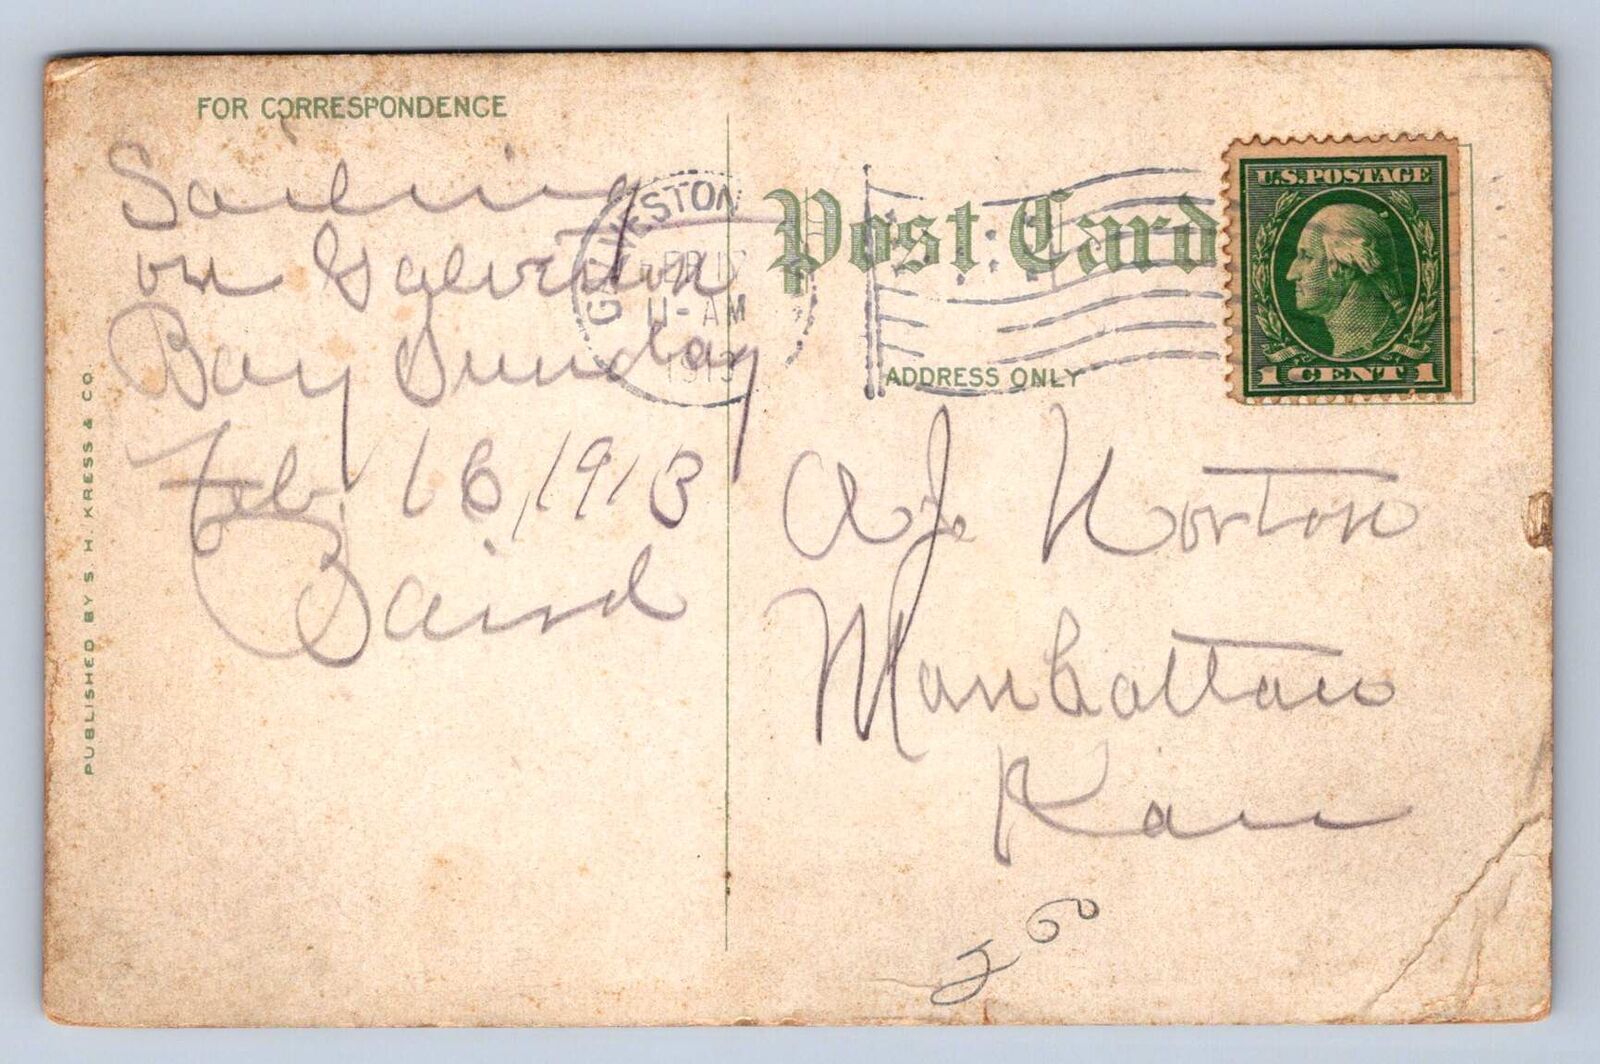 FOR CORRESPONDENCE
Sailing
on Galveston
Bay Sunday
Feb. 16, 1913
Baird
PUBLISHED BY S. H. KRESS & CO.
GALVESTON
FEB 17
11-AM
1913
Post Card
ADDRESS ONLY
U.S. POSTAGE
1 CENT 1
A J. Norton
Manhattan
Kan